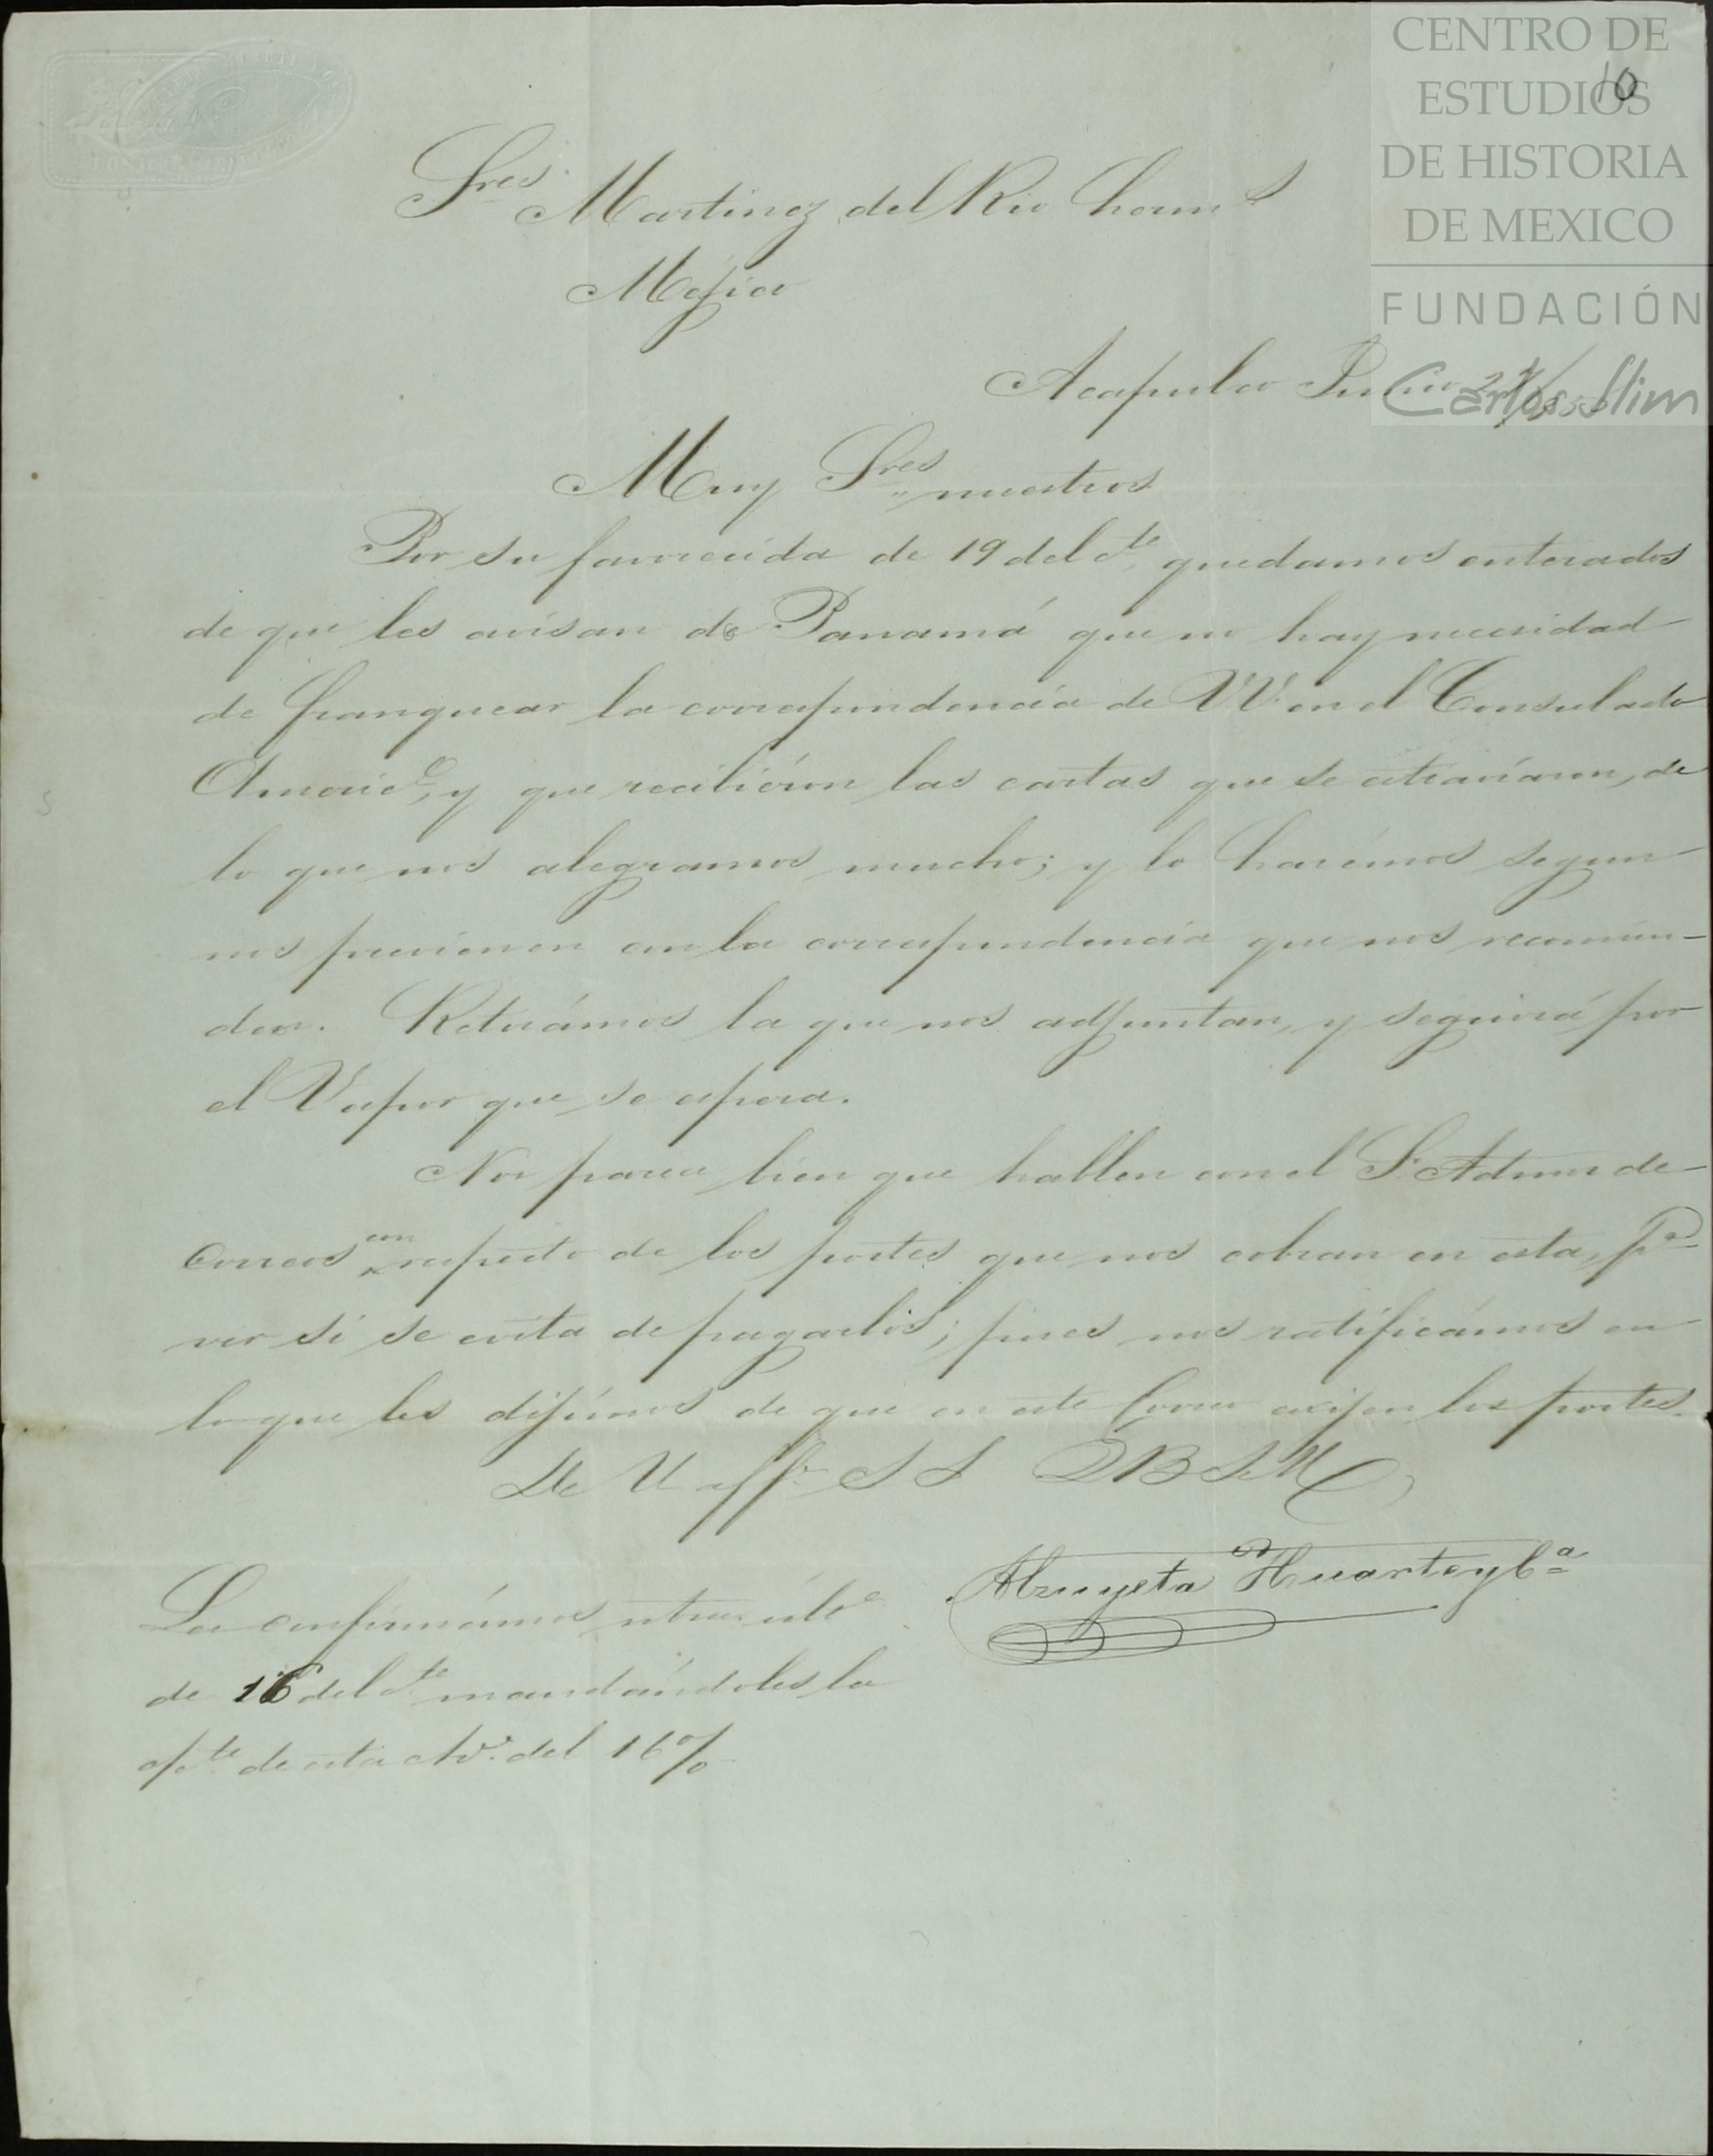 CENTRO DE
ESTUDIOS
DE HISTORIA
DE MEXICO
FUNDACIÓN
Carlos Slim
10
Sres Martinez del Rio herms
Mejico
Acapulco Junio
Muy Sres nuestros
Por su favorecida de 19 del cte quedamos enterados
de que les avisan de Panamá que no hay necesidad
de franquear la correspondencia de VV. en el Consulado
Americo, y que recibiéron las cartas que se estraviaron, de
lo que nos alegramos mucho; y lo harémos segun
nos previenen con la correspondencia que nos recomien-
den. Retirámos la que nos adjuntan, y seguirá por
el Vapor que se espera.
Nos parece bien que hablen con el Sr. Admor de
Correos con respecto de los portes que nos cobran en esta, pa
ver si se evita de pagarlos; pues nos ratificámos en
lo que les dijimos de que en este Correo exijen los portes.
De V affs S S Q B S M
Alzuyeta Huarte y Ca
Les confirmámos ntra últa
de 16 del cte mandándoles la
de esta Ada. del 16%